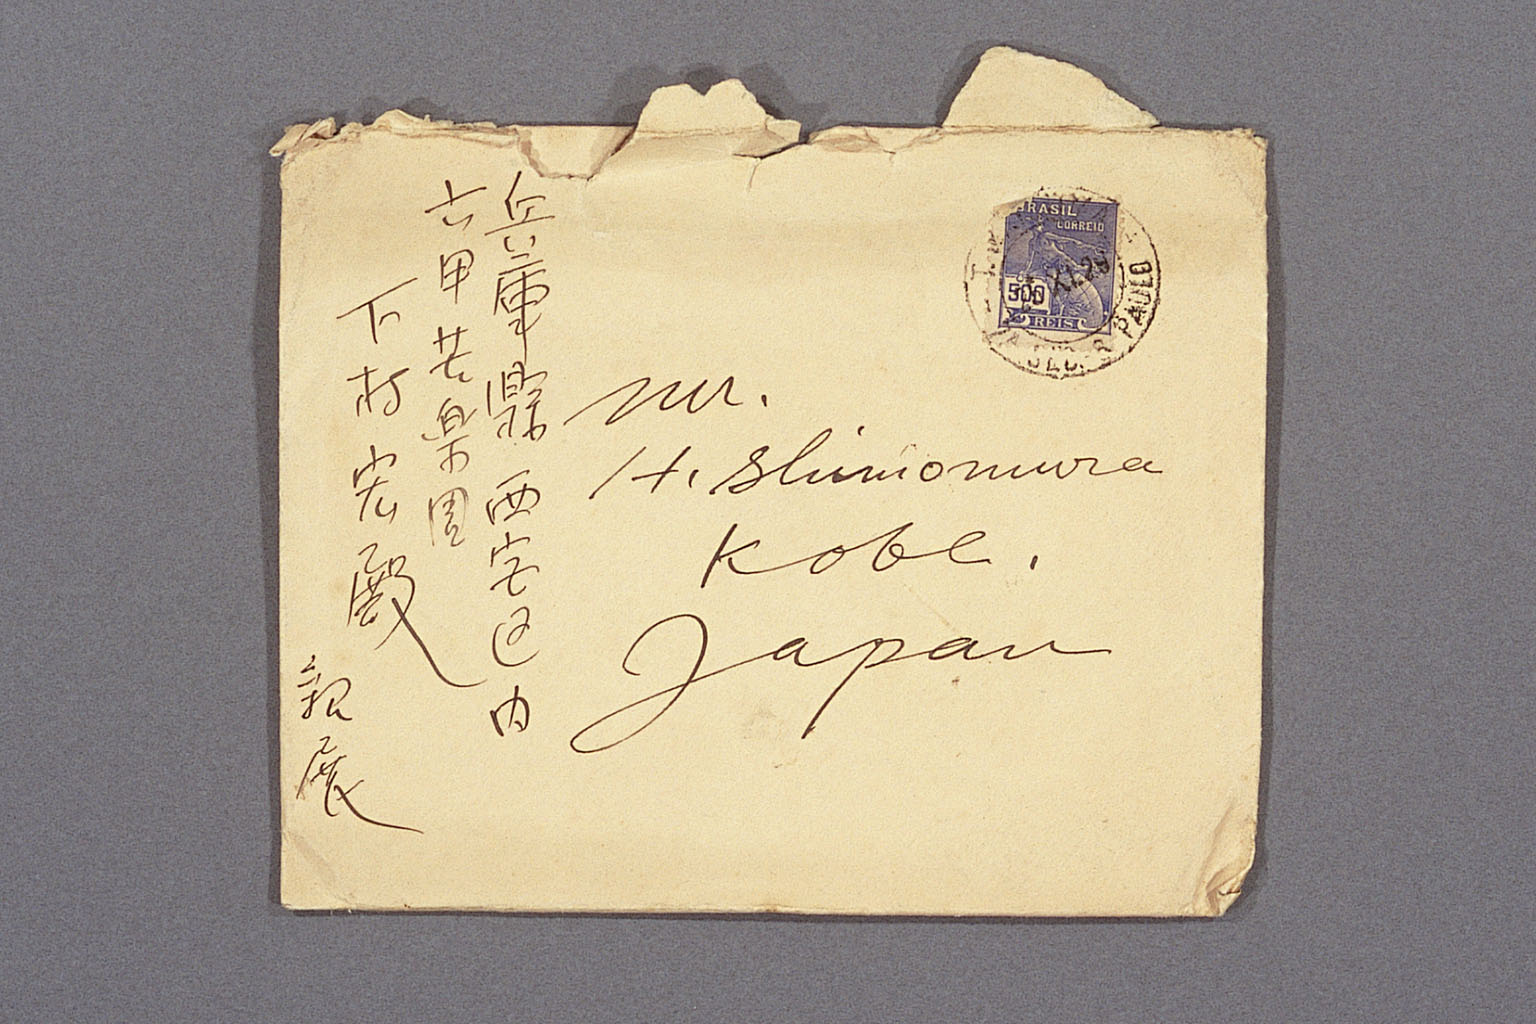 兵庫縣西宮区内
六甲苦楽園
下村宏殿
親展
Mr.
H. Shimomura
Kobe.
Japan
BRASIL
CORREIO
500
REIS
PAULO